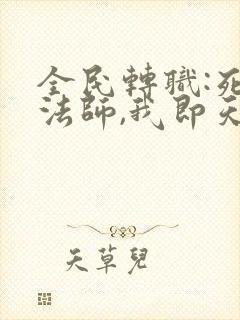 全民轉職:死
法師,我即天
天草兒